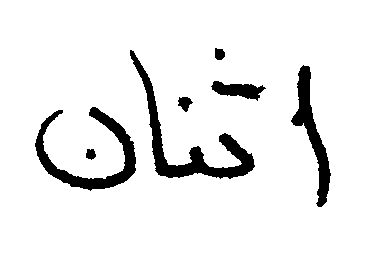 اثنان